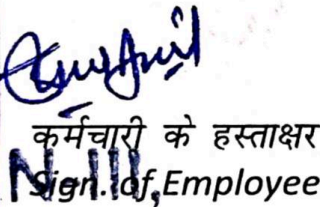 कर्मचारी के हस्ताक्षर
N.III,
Sign. of Employee